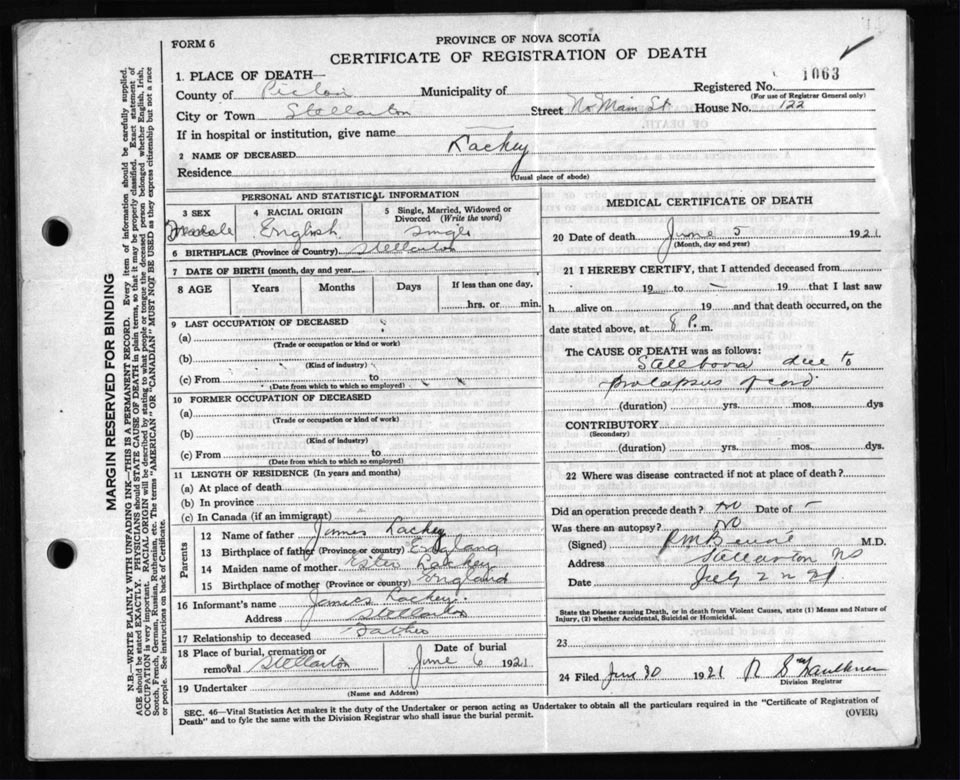 FORM 6
PROVINCE OF NOVA SCOTIA
CERTIFICATE OF REGISTRATION OF DEATH
1. PLACE OF DEATH—
1063
County of Pictou Municipality of Registered No.
(For use of Registrar General only)
City or Town Stellarton Street No Main St House No. 122
If in hospital or institution, give name
2 NAME OF DECEASED Lackey
Residence
(Usual place of abode)
PERSONAL AND STATISTICAL INFORMATION
3 SEX 4 RACIAL ORIGIN 5 Single, Married, Widowed or Divorced (Write the word)
English Single
6 BIRTHPLACE (Province or Country) Stellarton
7 DATE OF BIRTH (month, day and year
8 AGE Years Months Days If less than one day,
hrs. or min.
9 LAST OCCUPATION OF DECEASED
(a)
(Trade or occupation or kind or work)
(b)
(Kind of industry)
(c) From to
(Date from which to which so employed)
10 FORMER OCCUPATION OF DECEASED
(a)
(Trade or occupation or kind of work)
(b)
(Kind of industry)
(c) From to
(Date from which to which so employed)
11 LENGTH OF RESIDENCE (In years and months)
(a) At place of death
(b) In province
(c) In Canada (if an immigrant)
Parents
12 Name of father James Lackey
13 Birthplace of father (Province or country) England
14 Maiden name of mother Ester Lackey
15 Birthplace of mother (Province or country) England
16 Informant's name James Lackey.
Address Stellarton
17 Relationship to deceased Father
18 Place of burial, cremation or removal Stellarton
Date of burial
June 6 1921
19 Undertaker
(Name and Address)
MEDICAL CERTIFICATE OF DEATH
20 Date of death June 5 1921
(Month, day and year)
21 I HEREBY CERTIFY, that I attended deceased from
19 to 19 that I last saw
h alive on 19 and that death occurred, on the
date stated above, at 8 P. m.
The CAUSE OF DEATH was as follows:
Stillborn due to
prolapsus of cord
(duration) yrs. mos. dys
CONTRIBUTORY
(Secondary)
(duration) yrs. mos. dys.
22 Where was disease contracted if not at place of death?
Did an operation precede death? No Date of —
Was there an autopsy? No
(Signed) M.D.
Address Stellarton NS
Date July 2 21
State the Disease causing Death, or in death from Violent Causes, state (1) Means and Nature of
Injury, (2) whether Accidental, Suicidal or Homicidal.
23
24 Filed June 30 1921 Faulkner
Division Registrar
SEC. 46—Vital Statistics Act makes it the duty of the Undertaker or person acting as Undertaker to obtain all the particulars required in the "Certificate of Registration of
Death" and to fyle the same with the Division Registrar who shall issue the burial permit.
(OVER)
MARGIN RESERVED FOR BINDING
N.B.—WRITE PLAINLY WITH UNFADING INK—THIS IS A PERMANENT RECORD. Every item of information should be carefully supplied.
AGE should be stated EXACTLY. PHYSICIANS should STATE CAUSE OF DEATH in plain terms, so that it may be properly classified. Exact statement of
OCCUPATION is very important. RACIAL ORIGIN will be described by stating to what people or tongue the deceased person belonged whether English, Irish,
Scotch, French, German, Russian, Ruthenian, etc. The terms "AMERICAN" OR "CANADIAN" MUST NOT BE USED as they express citizenship but not a race
or people. See instructions on back of Certificate.